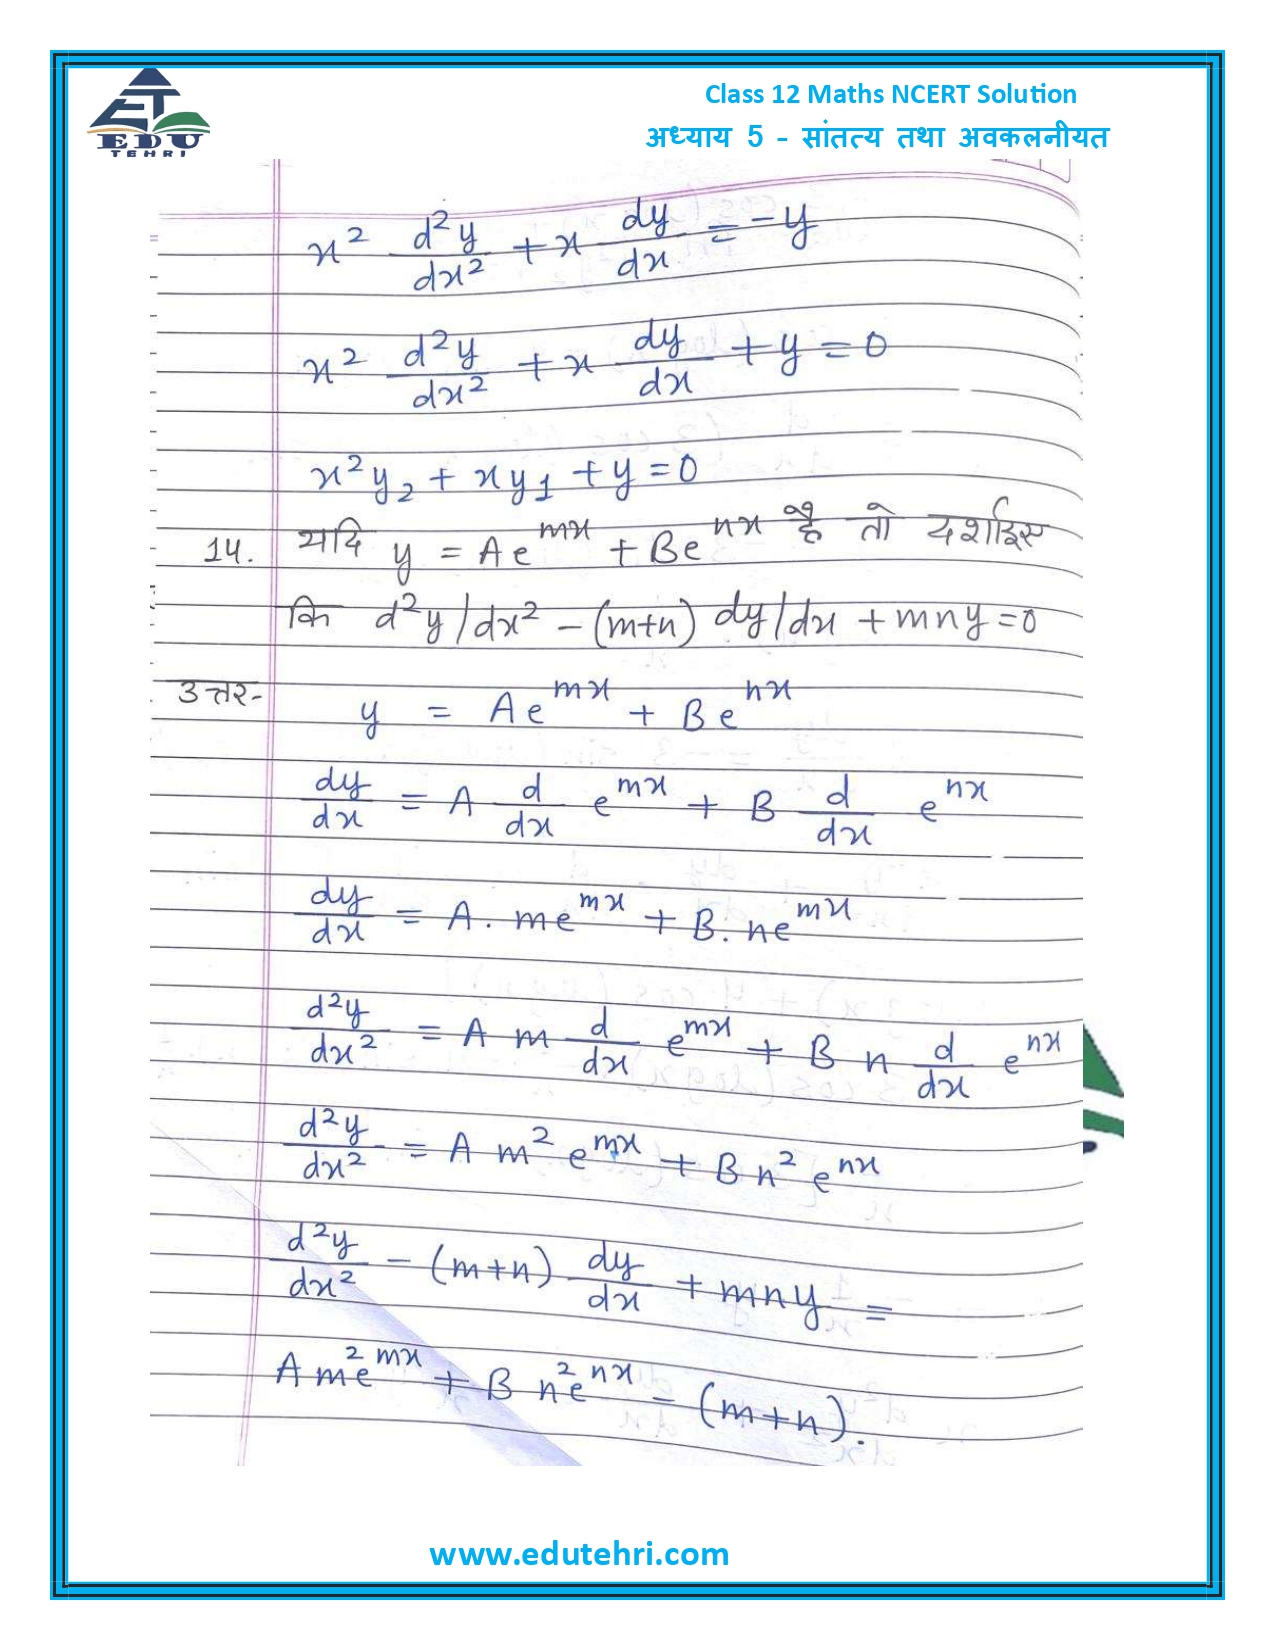 EDU
TEHRI
Class 12 Maths NCERT Solution
अध्याय 5 - सांतत्य तथा अवकलनीयत
x² d²y/dx² + x dy/dx = -y
x² d²y/dx² + x dy/dx + y = 0
x²y₂ + xy₁ + y = 0
14. यदि y = Ae^mx + Be^nx है तो दर्शाइस
कि d²y/dx² - (m+n) dy/dx + mny = 0
उत्तर- y = Ae^mx + Be^nx
dy/dx = A d/dx e^mx + B d/dx e^nx
dy/dx = A. me^mx + B. ne^mx
d²y/dx² = A m d/dx e^mx + B n d/dx e^nx
d²y/dx² = A m² e^mx + B n² e^nx
d²y/dx² - (m+n) dy/dx + mny =
A m²e^mx + B n²e^nx - (m+n).
www.edutehri.com